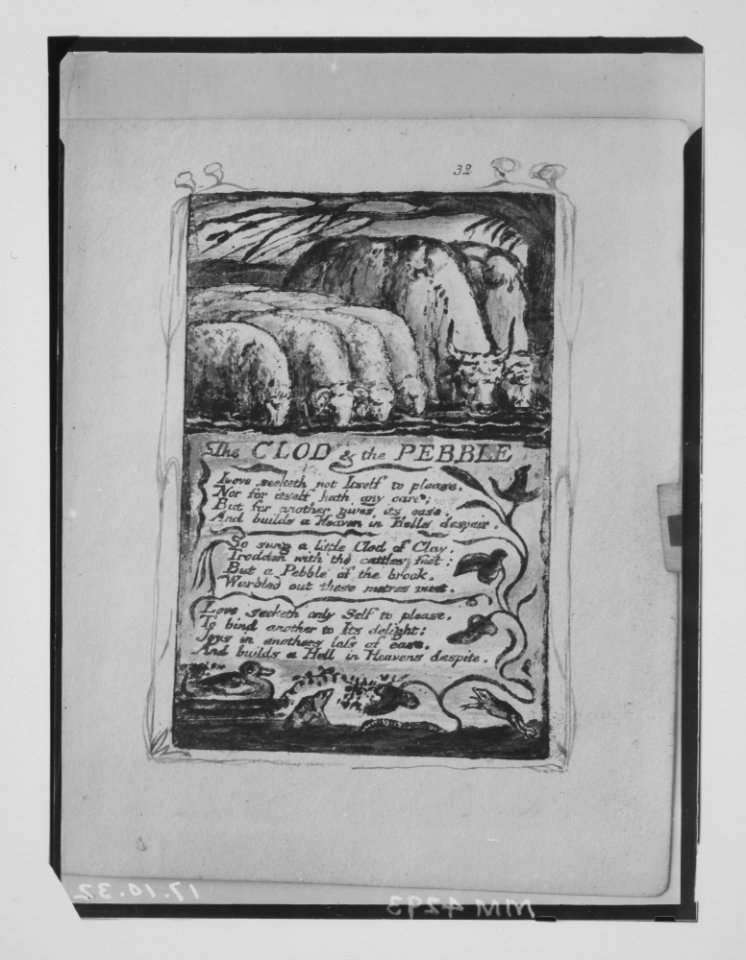 32
The CLOD & the PEBBLE
Love seeketh not Itself to please,
Nor for itself hath any care;
But for another gives its ease,
And builds a Heaven in Hells despair.
So sung a little Clod of Clay,
Trodden with the cattles feet:
But a Pebble of the brook,
Warbled out these metres meet.
Love seeketh only Self to please,
To bind another to Its delight;
Joys in anothers loss of ease,
And builds a Hell in Heavens despite.
17.10.32
MM 4293